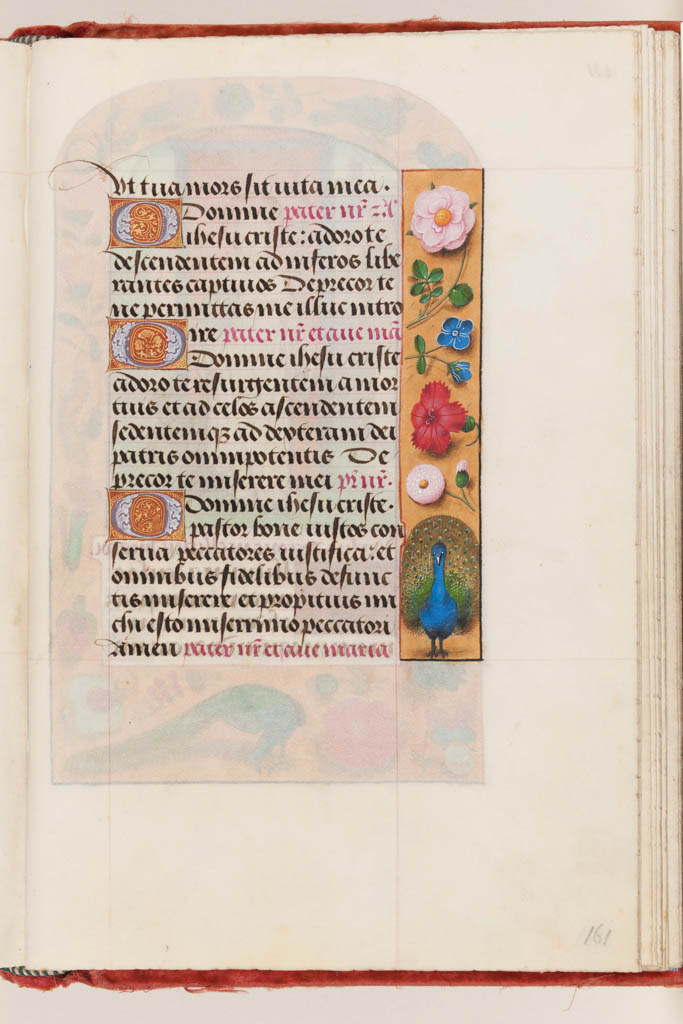 Ut tua mors sit vita mea.
Domine pater nr̄ z A
ihesu criste: adoro te
descendentem ad inferos libe
rantes captivos Deprecor te
ne permittas me illuc intro
ire pater nr̄ et ave mā
O Domine ihesu criste
adoro te resurgentem a mor
tuis et ad celos ascendentem
sedentemq̄ ad dexteram dei
patris omnipotentis De
precor te miserere mei pr̄ nr̄.
O Domine ihesu criste.
pastor bone iustos con
serva peccatores iustifica: et
omnibus fidelibus defunc
tis miserere et propitius mi
chi esto miserrimo peccatori
Amen pater nr̄ et ave maria
161